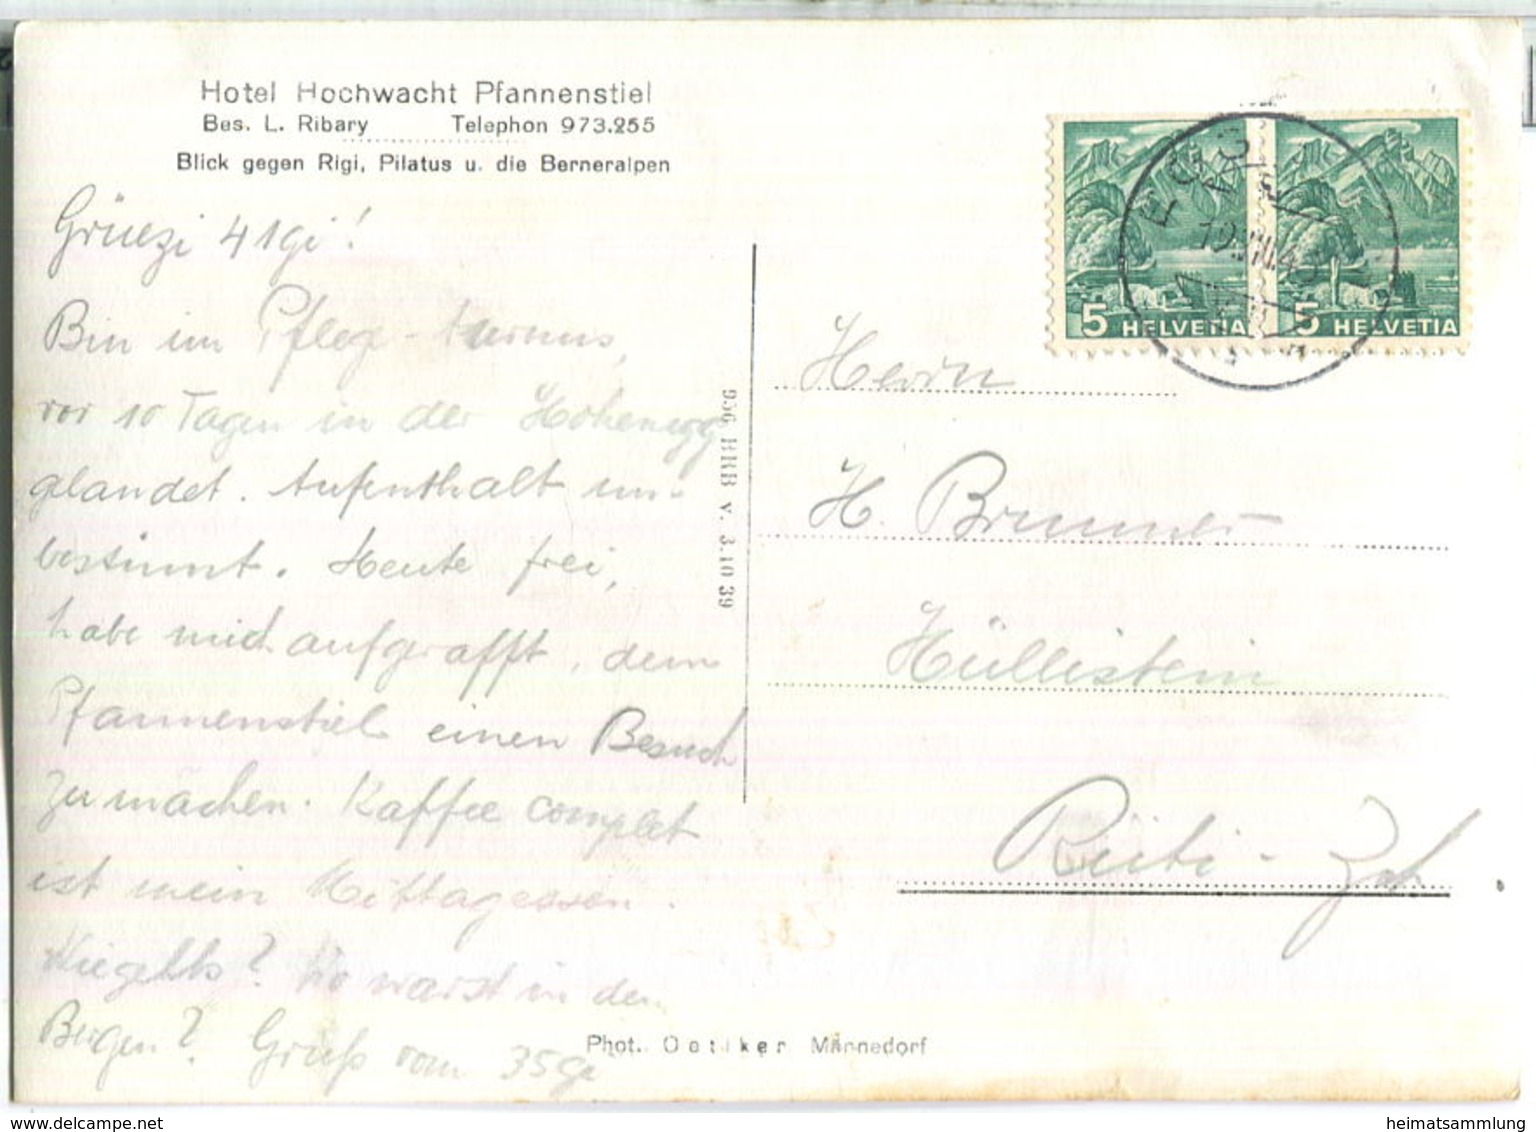 Hotel Hochwacht Pfannenstiel
Bes. L. Ribary Telephon 973.255
Blick gegen Rigi, Pilatus u. die Berneralpen
Grüezi 41gi!
Bin im Pfleg-Turnus,
vor 10 Tagen in der Hohenegg
glandet. Aufenthalt un-
bestimmt. Heute frei,
habe mich aufgrafft, dem
Pfannenstiel einen Besuch
zu machen. Kaffee complet
ist mein Mittagessen.
Wie gehts? Wo warst in den
Bergen? Gruß vom 35ge
936 BRB v. 3.10 39
5 HELVETIA 5 HELVETIA
Herrn
H. Brunner
Hüllistein
Rüti - Zch
Phot. Oetiker Männedorf
www.delcampe.net
heimatsammlung